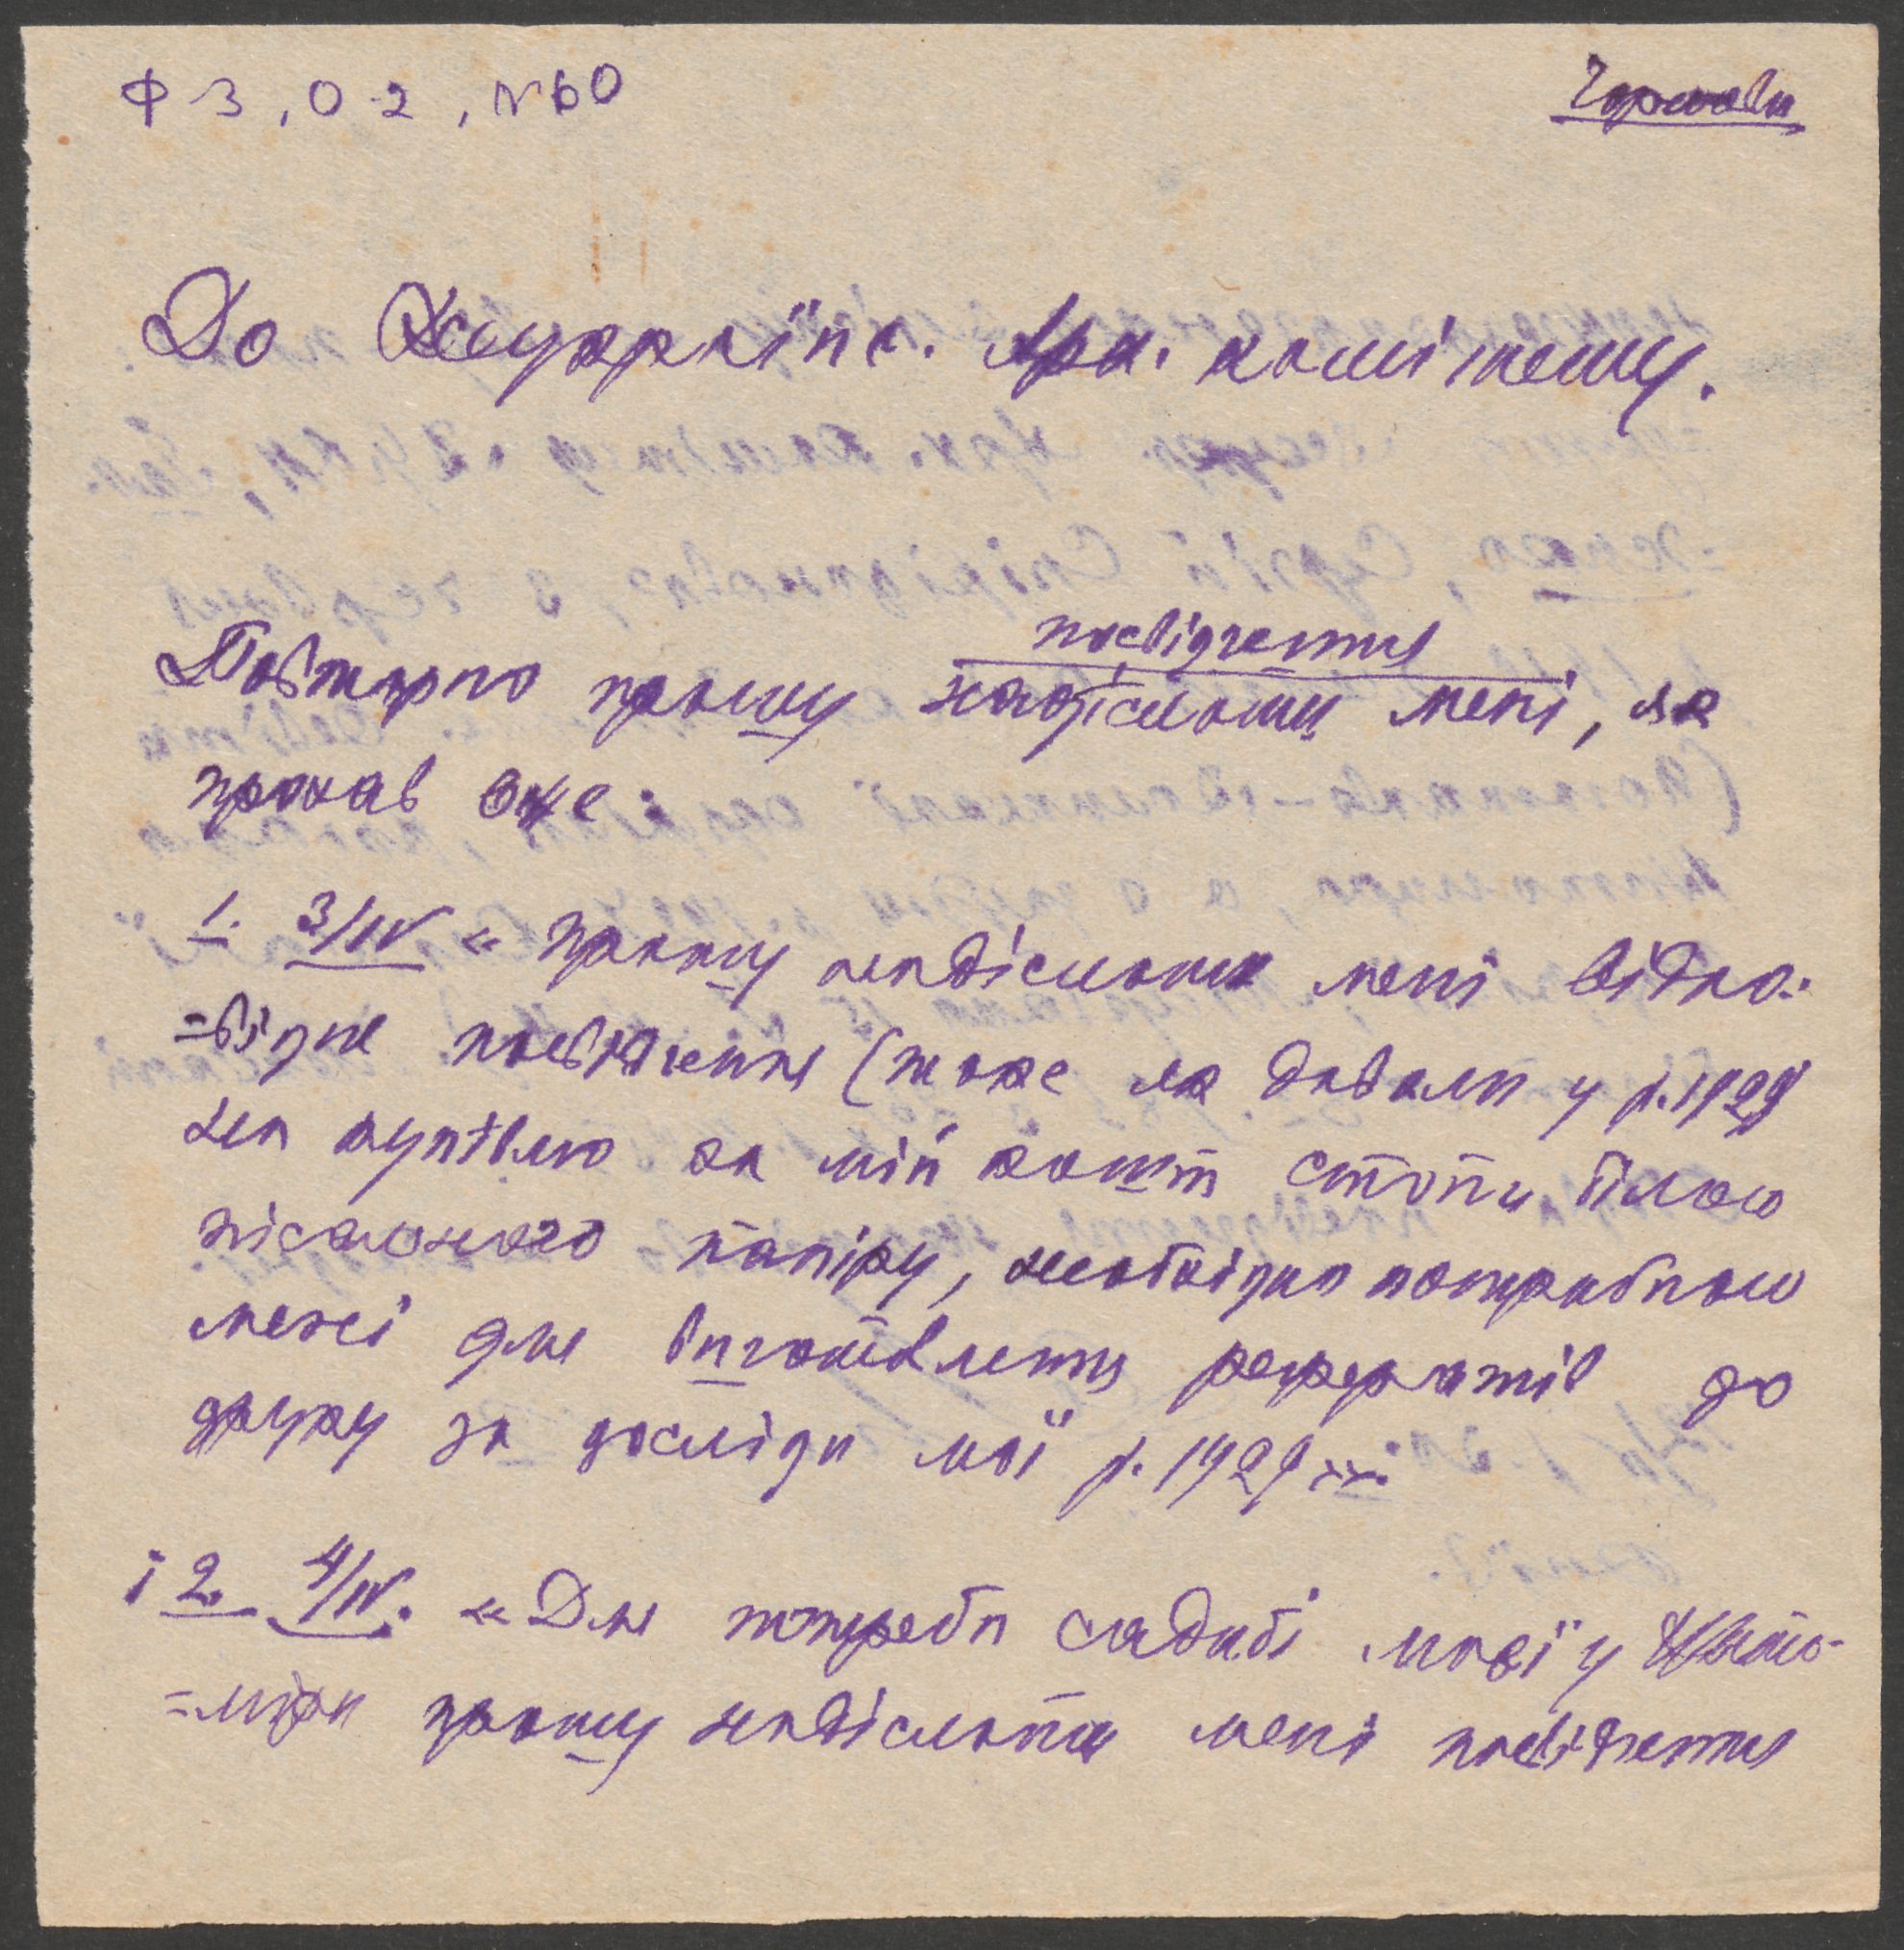 Ф 3, О 2, №60
До Всеукраїнс. Арх. комітету.
посвідчення
Повторно прошу надіслати мені, як
прохав вже:
1. 3/IV « прошу надіслати мені відпо-
=відне посвідчення (таке як давали у р. 1929
на купівлю за мій кошт стопи білого
пісального папіру, необхідно потрибного
мені для виготовлення рефератів до
друку за досліди мої р. 1929
і 2. 4/IV. « Для потреби садиби моєї у Жито-
=мірі прошу надіслати мені посвідчення